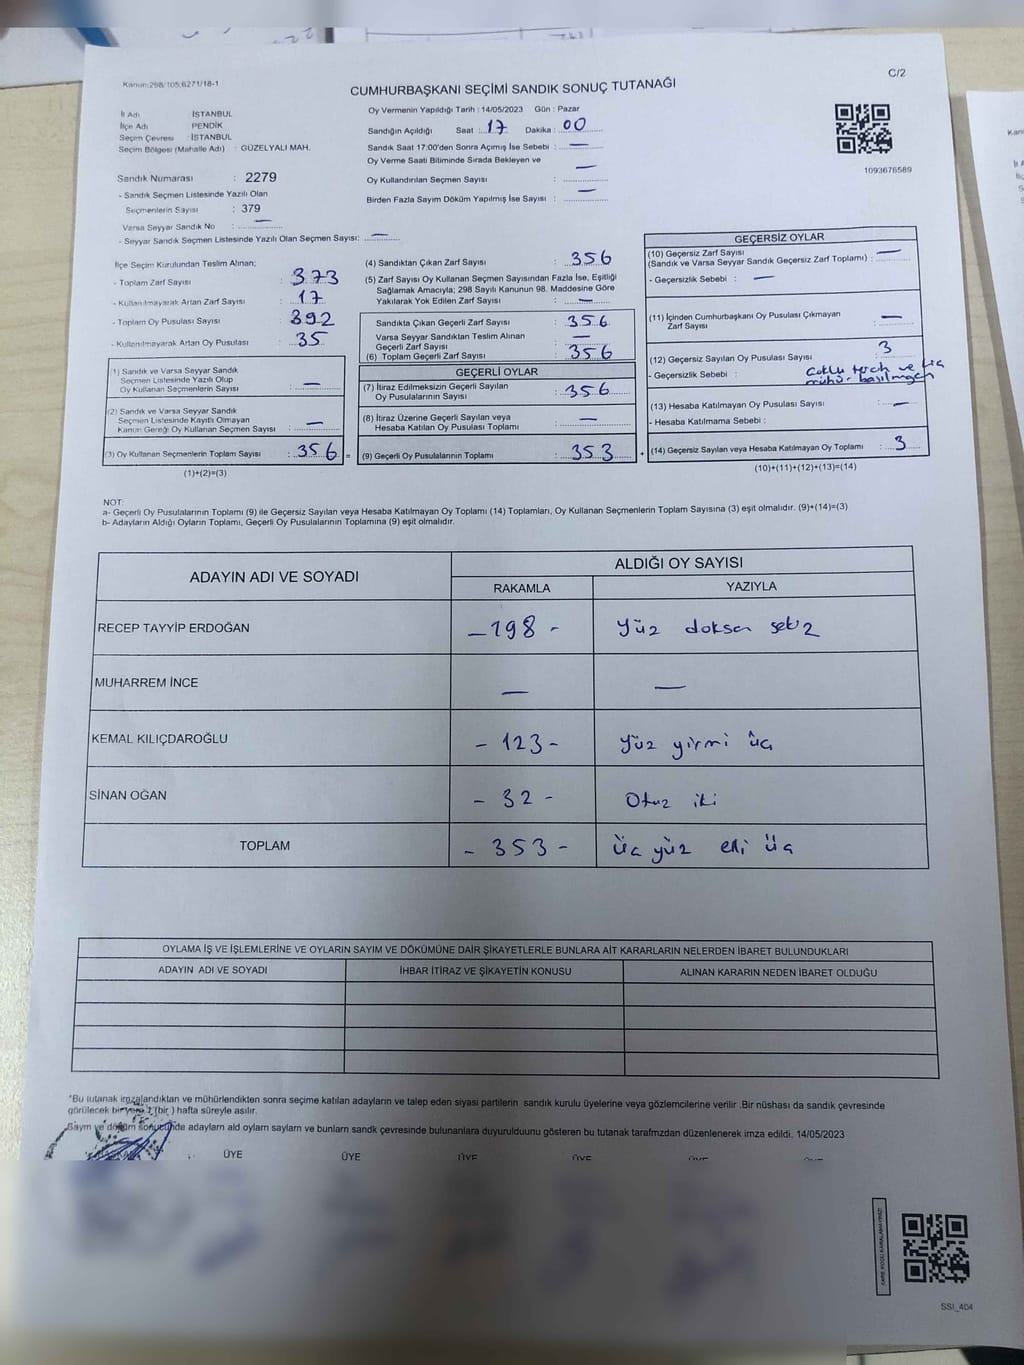 Kanun:298/105;6271/18-1
C/2
CUMHURBAŞKANI SEÇİMİ SANDIK SONUÇ TUTANAĞI
İl Adı : İSTANBUL
İlçe Adı : PENDİK
Seçim Çevresi : İSTANBUL
Seçim Bölgesi (Mahalle Adı) : GÜZELYALI MAH.
Sandık Numarası : 2279
- Sandık Seçmen Listesinde Yazılı Olan
Seçmenlerin Sayısı : 379
Varsa Seyyar Sandık No : —
- Seyyar Sandık Seçmen Listesinde Yazılı Olan Seçmen Sayısı: —
Oy Vermenin Yapıldığı Tarih : 14/05/2023 Gün : Pazar
Sandığın Açıldığı Saat : 17 Dakika : 00
Sandık Saat 17:00'den Sonra Açılmış İse Sebebi : —
Oy Verme Saati Bitiminde Sırada Bekleyen ve
Oy Kullandırılan Seçmen Sayısı : —
Birden Fazla Sayım Döküm Yapılmış İse Sayısı : —
1093676589
İlçe Seçim Kurulundan Teslim Alınan;
- Toplam Zarf Sayısı : 373
- Kullanılmayarak Artan Zarf Sayısı : 17
- Toplam Oy Pusulası Sayısı : 392
- Kullanılmayarak Artan Oy Pusulası : 35
(1) Sandık ve Varsa Seyyar Sandık
Seçmen Listesinde Yazılı Olup
Oy Kullanan Seçmenlerin Sayısı : —
(2) Sandık ve Varsa Seyyar Sandık
Seçmen Listesinde Kayıtlı Olmayan
Kanun Gereği Oy Kullanan Seçmen Sayısı : —
(3) Oy Kullanan Seçmenlerin Toplam Sayısı : 356 =
(1)+(2)=(3)
(4) Sandıktan Çıkan Zarf Sayısı : 356
(5) Zarf Sayısı Oy Kullanan Seçmen Sayısından Fazla İse, Eşitliği
Sağlamak Amacıyla; 298 Sayılı Kanunun 98. Maddesine Göre
Yakılarak Yok Edilen Zarf Sayısı : —
Sandıkta Çıkan Geçerli Zarf Sayısı : 356
Varsa Seyyar Sandıktan Teslim Alınan
Geçerli Zarf Sayısı : —
(6) Toplam Geçerli Zarf Sayısı : 356
GEÇERLİ OYLAR
(7) İtiraz Edilmeksizin Geçerli Sayılan
Oy Pusulasının Sayısı : 356
(8) İtiraz Üzerine Geçerli Sayılan veya
Hesaba Katılan Oy Pusulası Toplamı : —
(9) Geçerli Oy Pusulalarının Toplamı : 353 +
GEÇERSİZ OYLAR
(10) Geçersiz Zarf Sayısı
(Sandık ve Varsa Seyyar Sandık Geçersiz Zarf Toplamı) : —
- Geçersizlik Sebebi : —
(11) İçinden Cumhurbaşkanı Oy Pusulası Çıkmayan
Zarf Sayısı : —
(12) Geçersiz Sayılan Oy Pusulası Sayısı : 3
- Geçersizlik Sebebi : Çoklu tercih ve
mühür basılmayan
(13) Hesaba Katılmayan Oy Pusulası Sayısı : —
- Hesaba Katılmama Sebebi :
(14) Geçersiz Sayılan veya Hesaba Katılmayan Oy Toplamı : 3
(10)+(11)+(12)+(13)=(14)
NOT:
a- Geçerli Oy Pusulalarının Toplamı (9) ile Geçersiz Sayılan veya Hesaba Katılmayan Oy Toplamı (14) Toplamları, Oy Kullanan Seçmenlerin Toplam Sayısına (3) eşit olmalıdır. (9)+(14)=(3)
b- Adayların Aldığı Oyların Toplamı, Geçerli Oy Pusulalarının Toplamına (9) eşit olmalıdır.
ADAYIN ADI VE SOYADI
ALDIĞI OY SAYISI
RAKAMLA YAZIYLA
RECEP TAYYİP ERDOĞAN – 198 – Yüz doksan sekiz
MUHARREM İNCE — —
KEMAL KILIÇDAROĞLU – 123 – Yüz yirmi üç
SİNAN OĞAN – 32 – Otuz iki
TOPLAM – 353 – Üç yüz elli üç
OYLAMA İŞ VE İŞLEMLERİNE VE OYLARIN SAYIM VE DÖKÜMÜNE DAİR ŞİKAYETLERLE BUNLARA AİT KARARLARIN NELERDEN İBARET BULUNDUKLARI
ADAYIN ADI VE SOYADI İHBAR İTİRAZ VE ŞİKAYETİN KONUSU ALINAN KARARIN NEDEN İBARET OLDUĞU
*Bu tutanak imzalandıktan ve mühürlendikten sonra seçime katılan adayların ve talep eden siyasi partilerin sandık kurulu üyelerine veya gözlemcilerine verilir .Bir nüshası da sandık çevresinde
görülecek bir yere 1 (bir ) hafta süreyle asılır.
Saym ve döküm sonucunde adaylarn ald oylarn saylarn ve bunlarn sandk çevresinde bulunanlara duyurulduunu gösteren bu tutanak tarafmzdan düzenlenerek imza edildi. 14/05/2023
ÜYE ÜYE ÜYE ÜYE
SSI_404